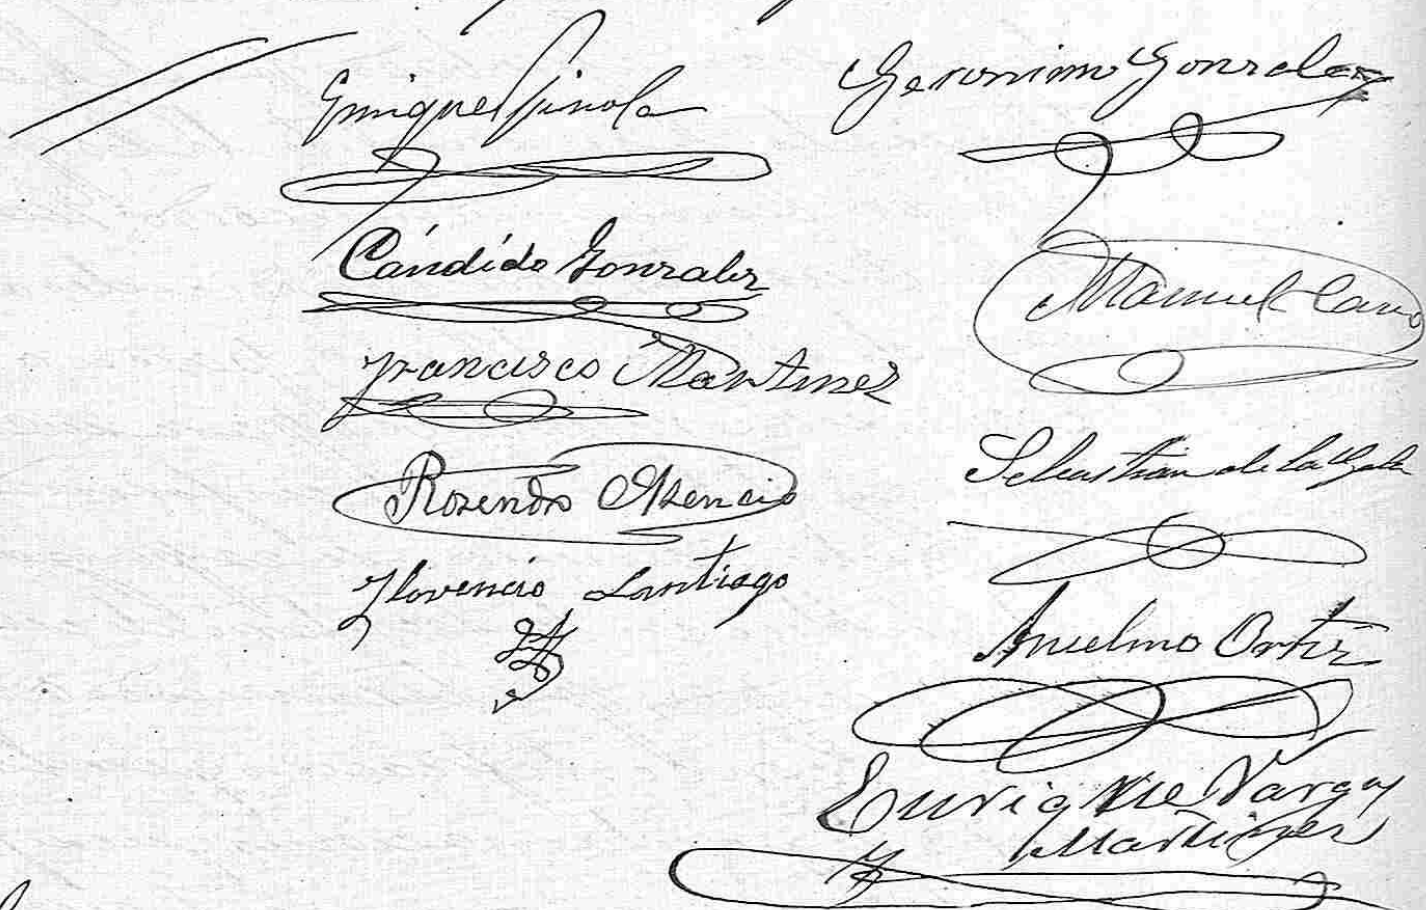 Enrique Spinola
Cándido Gonzalez
Francisco Martinez
Rosendo Asencio
Florencio Santiago
Geronimo Gonzalez
Manuel Cano
Sebastian de la
Anselmo Ortiz
Enrique Vargas
Martinez